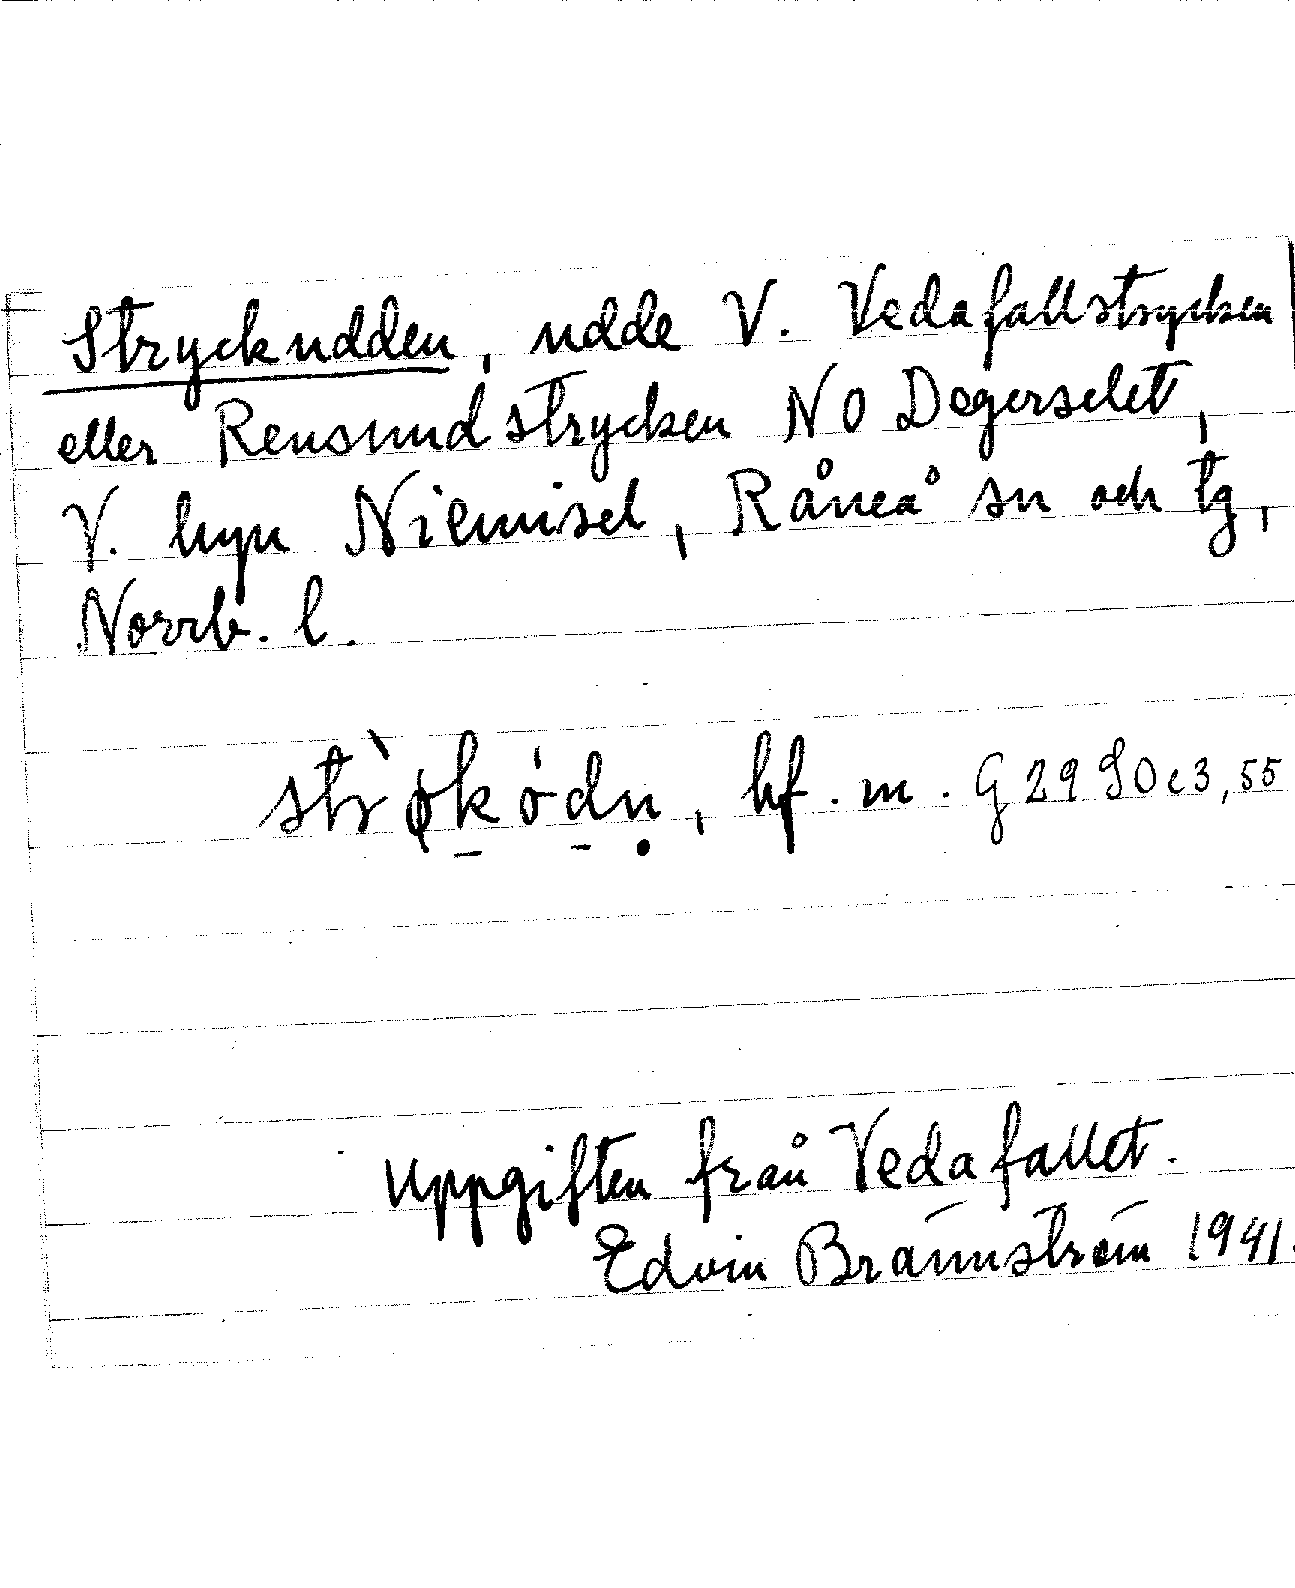 Stryckudden, udde V. Vedafallstrycken
eller Rensundstrycken NO Degerselet,
V. byn Niemisel, Råneå sn och tg,
Norrb. l.
bf. m. G 29 SO c3, 55
Uppgiften från Vedafallet.
Edvin Brännström 1941.